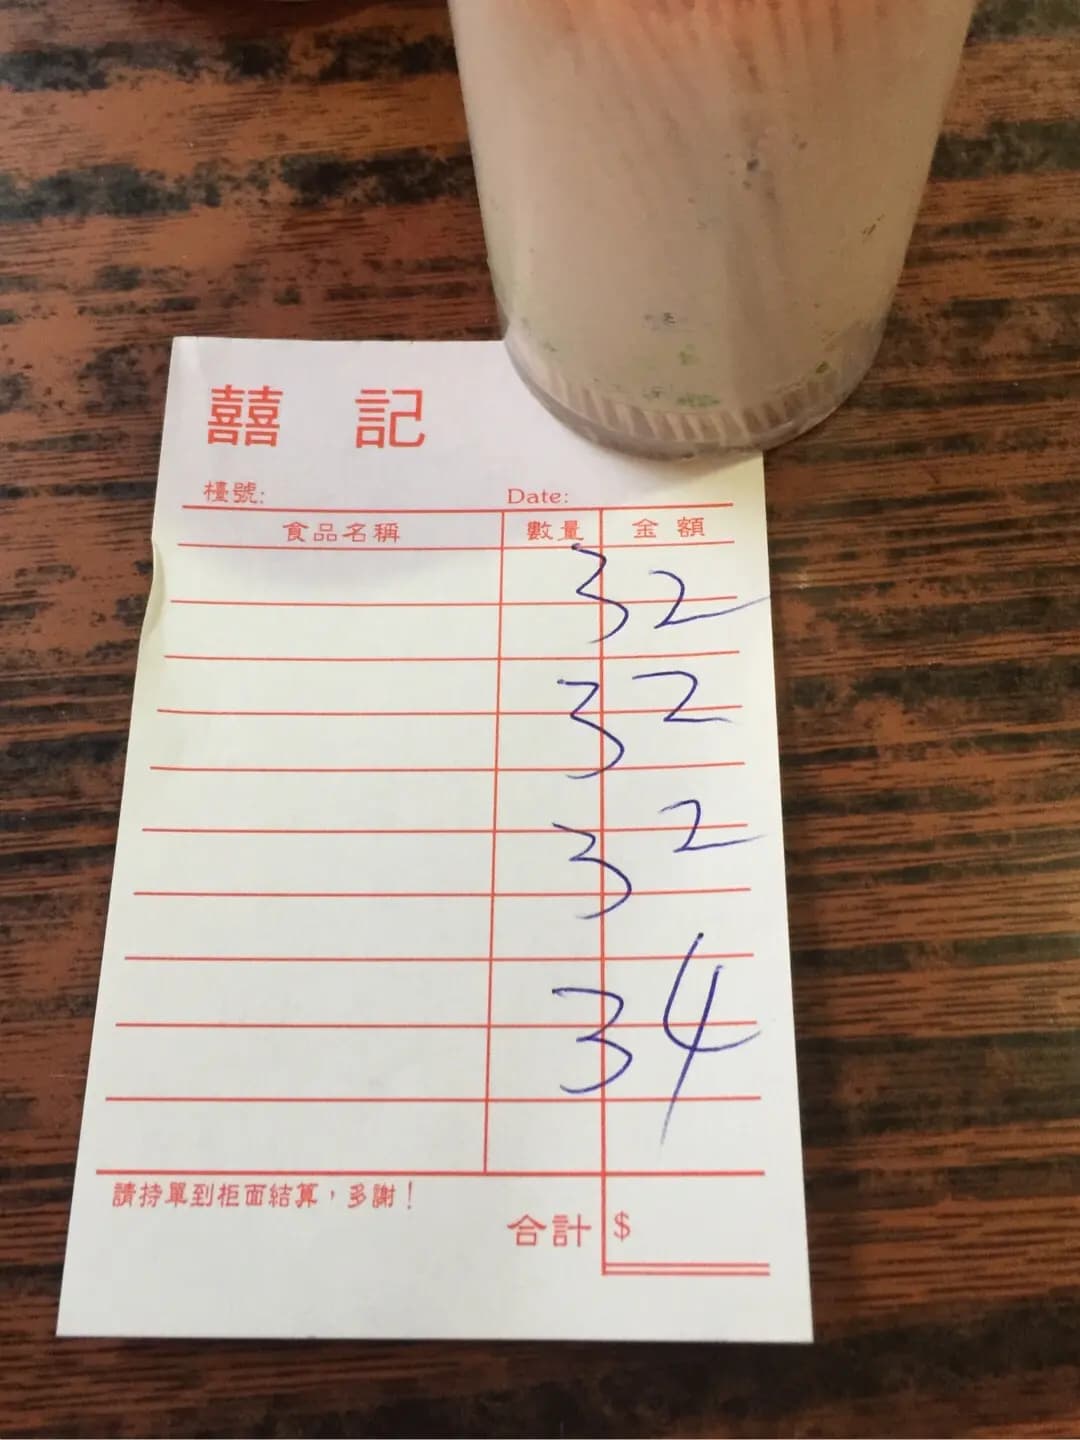 囍記
檯號: Date:
食品名稱 數量 金額
32
32
32
34
請持單到柜面結算，多謝！
合計 $